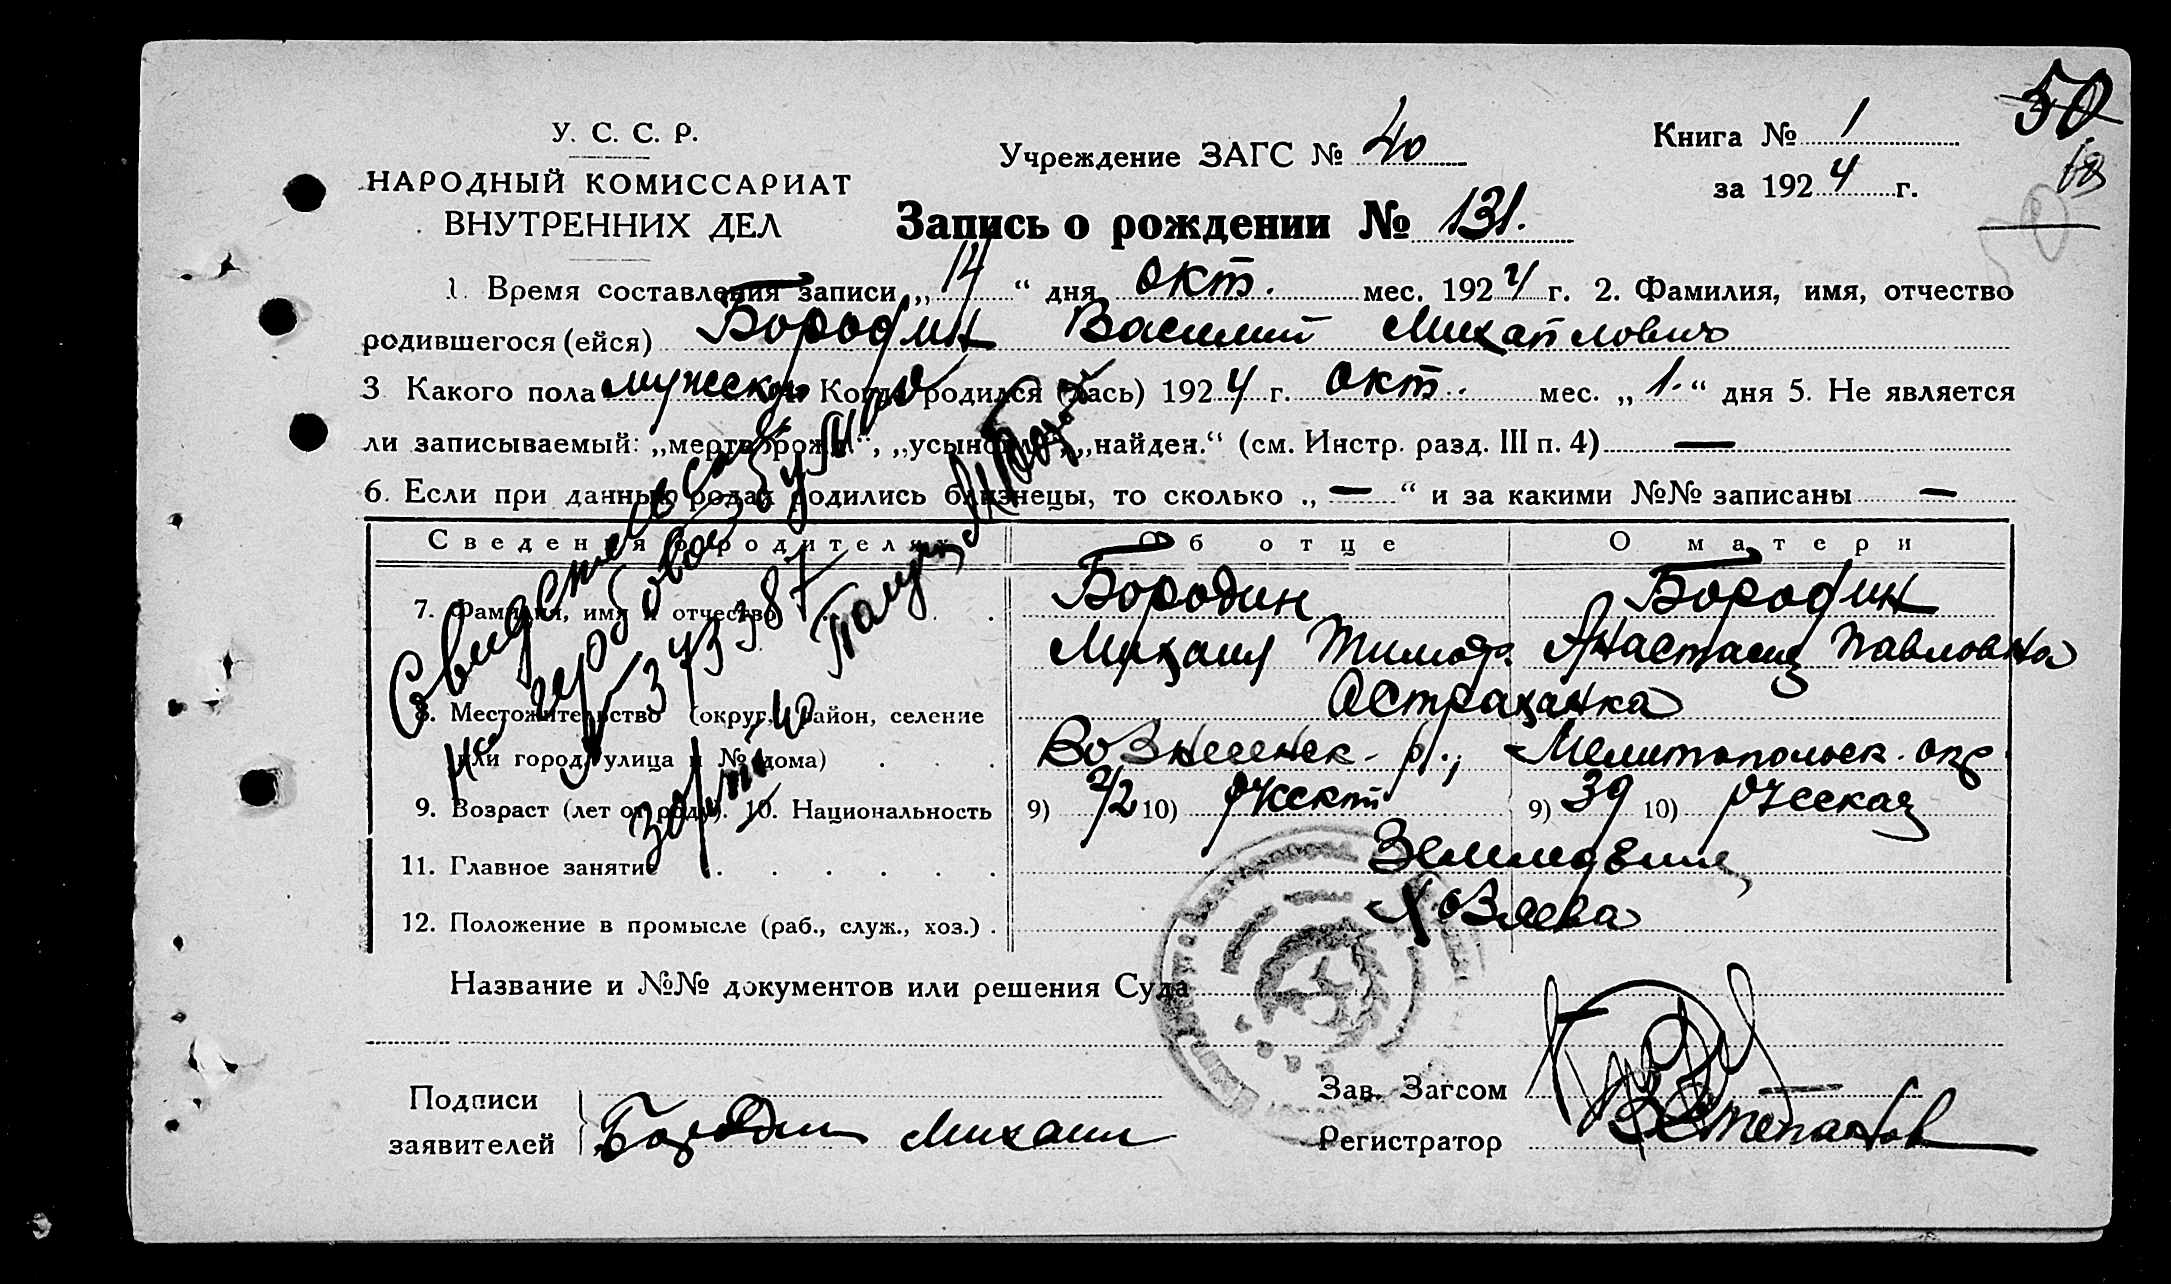 50
У. С. С. Р.
НАРОДНЫЙ КОМИССАРИАТ
ВНУТРЕННИХ ДЕЛ
Учреждение ЗАГС № 40
Книга № 1
за 1924 г.
68
Запись о рождении № 131.
1. Время составления записи „14“ дня окт. мес. 1924 г. 2. Фамилия, имя, отчество
родившегося (ейся) Бородин Василий Михайлович
3 Какого пола мужск Когда родился (лась) 1924 г. окт. мес. „1.“ дня 5. Не является
ли записываемый: „мертворожд“, „усыновл“, „найден.“ (см. Инстр. разд. III п. 4) —
6. Если при данных родах родились близнецы, то сколько „—“ и за какими №№ записаны —
Сведения о родителях Об отце О матери
7. Фамилия, имя и отчество Бородин Бородин
Михаил Тимоф. Анастасия Павловна
8. Местожительство (округ, район, селение Астраханка
или город, улица и № дома) Вознесенск. р., Мелитопольск. окр
9. Возраст (лет от роду). 10. Национальность 9) 42 10) Русский 9) 39 10) Русская
11. Главное занятие Земледелие
12. Положение в промысле (раб., служ., хоз.) Хозяева
Свидетельство
на гербовой бумаге
№ 373387
Получ.
Название и №№ документов или решения Суда
Подписи
заявителей Бородин Михаил
Зав. Загсом
Регистратор Степанов